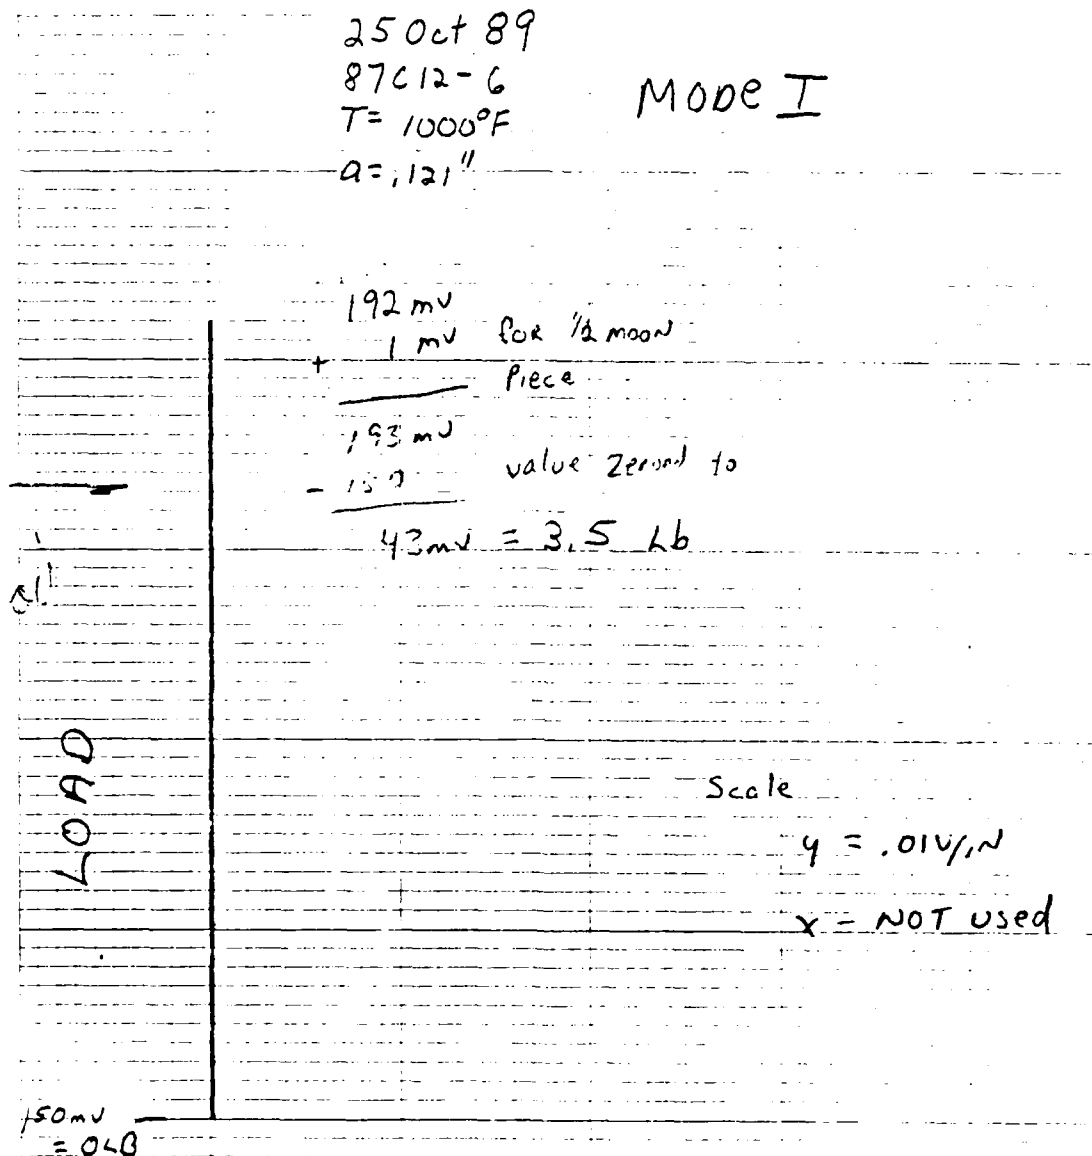 25 Oct 89
87C12-6
T= 1000°F
a=.121"
MODE I
192 mv
+ 1 mv for 1/2 moon
Piece
193 mv
- 150 value zeroed to
43mv = 3.5 Lb
LOAD
Scale
y = .01V/IN
x = NOT used
150mv
= 0LB